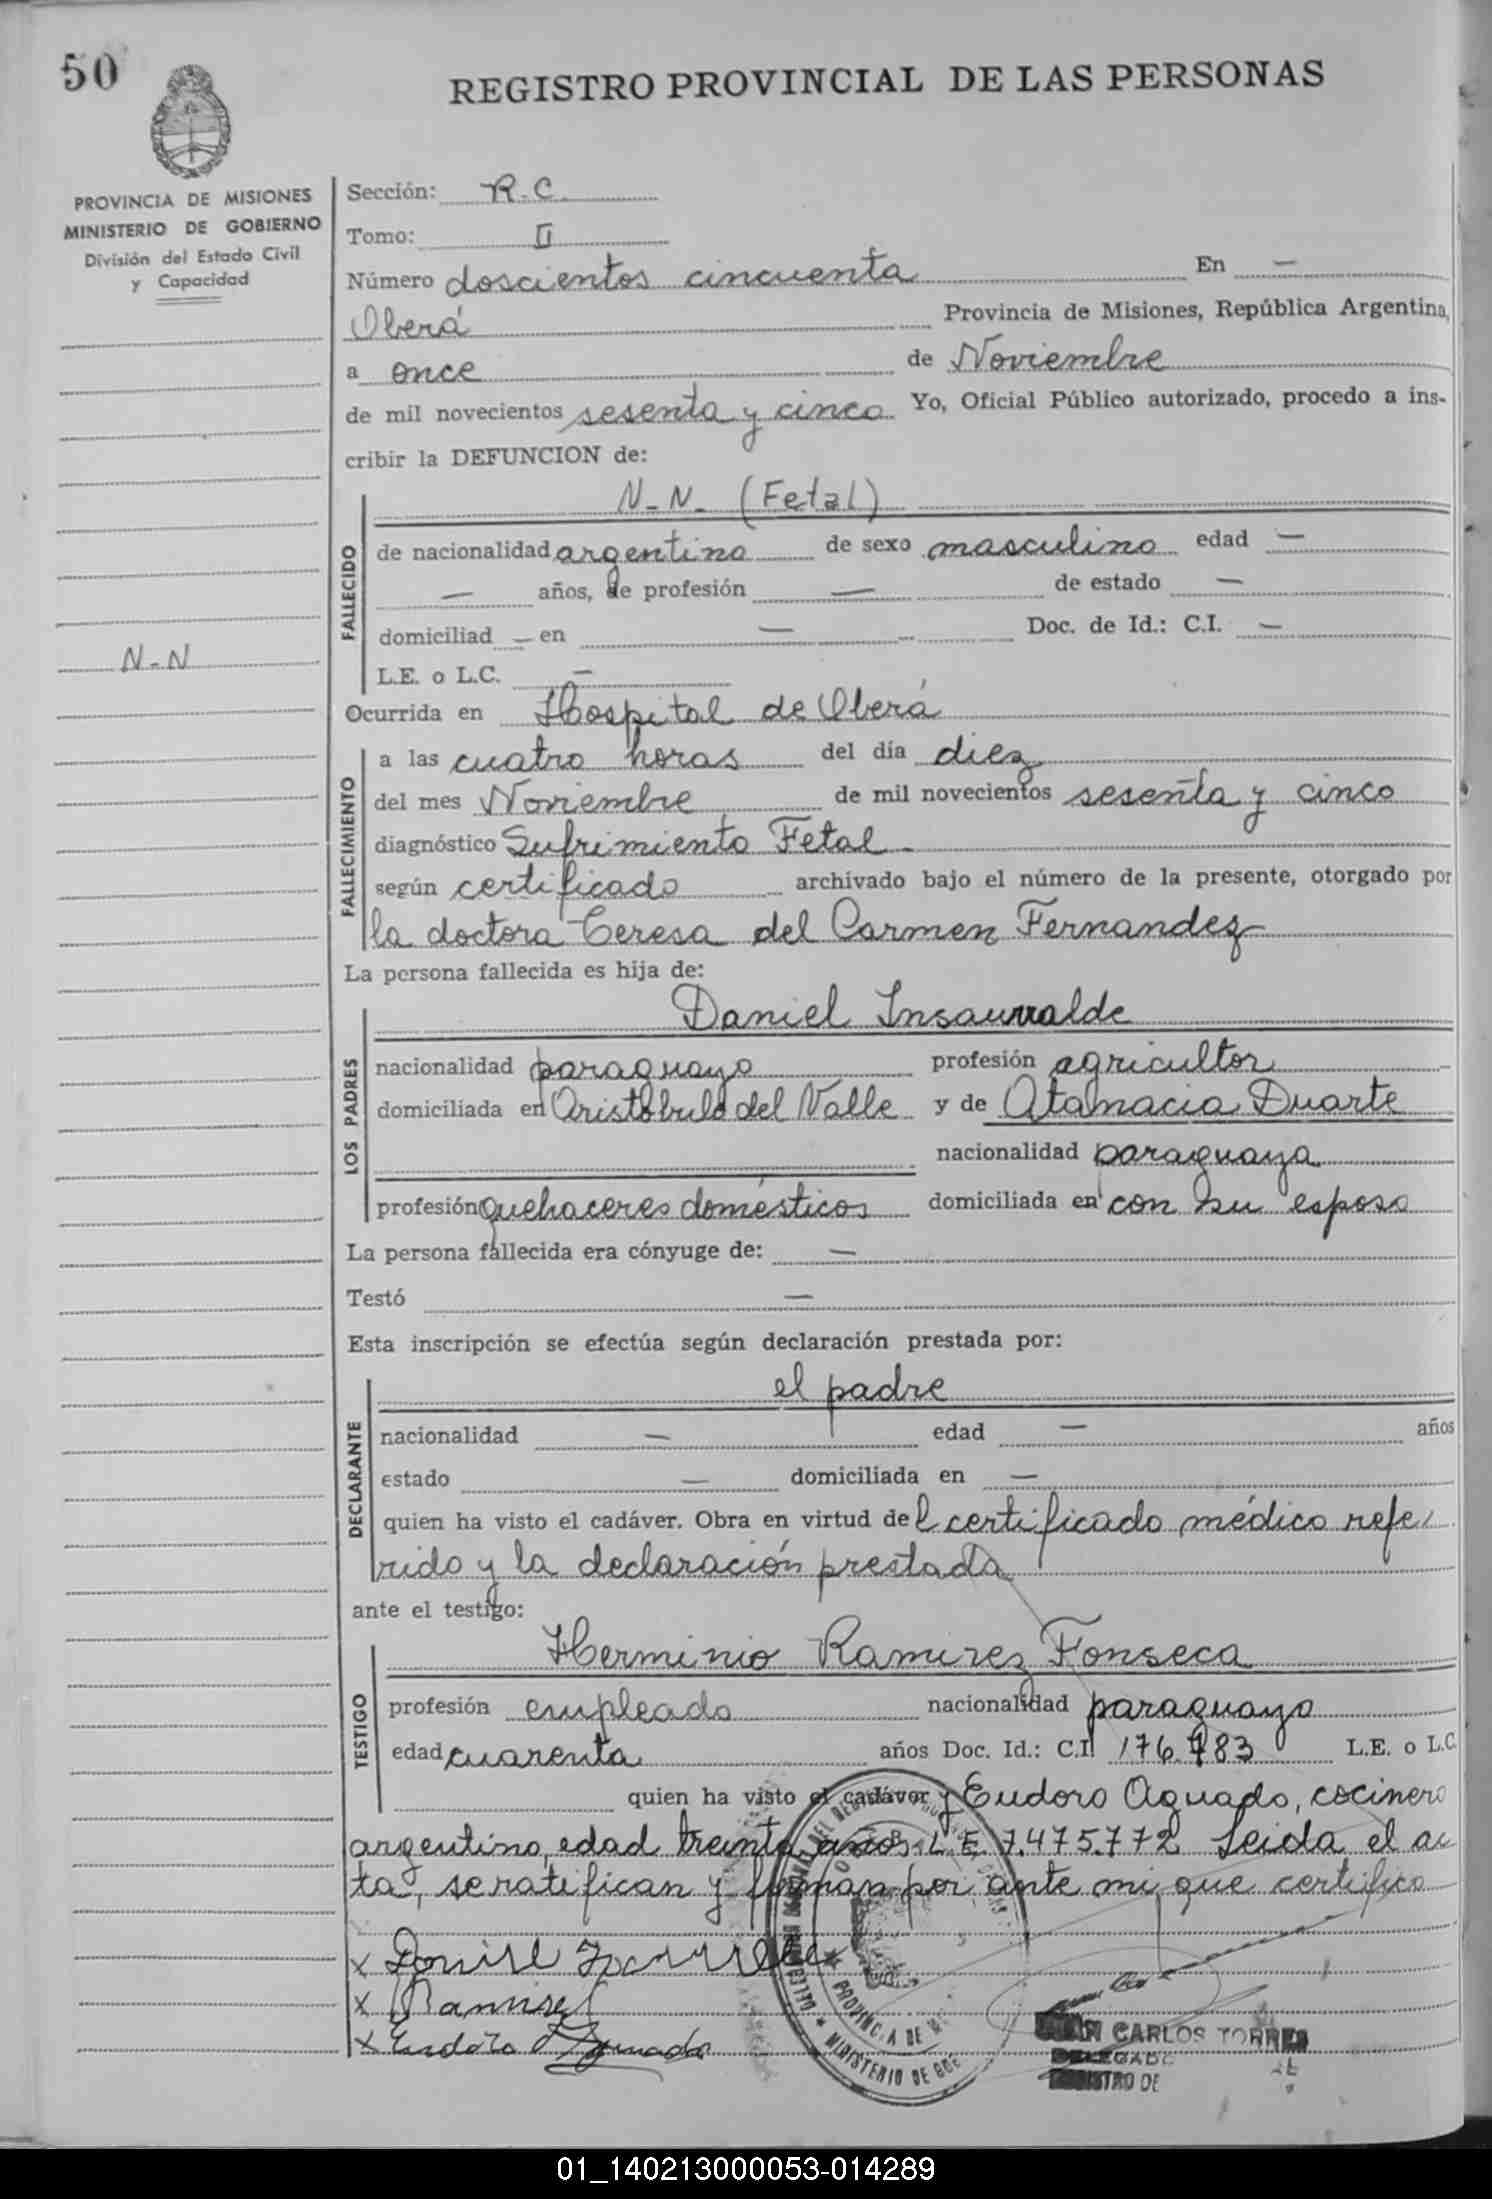 50
REGISTRO PROVINCIAL DE LAS PERSONAS
PROVINCIA DE MISIONES
MINISTERIO DE GOBIERNO
División del Estado Civil
y Capacidad
Sección: R.C.
Tomo: II
Número doscientos cincuenta En —
Oberá Provincia de Misiones, República Argentina,
a once de Noviembre
de mil novecientos sesenta y cinco Yo, Oficial Público autorizado, procedo a ins-
cribir la DEFUNCION de:
N-N- (Fetal)
FALLECIDO
de nacionalidad argentina de sexo masculino edad —
— años, de profesión — de estado —
domiciliad — en — Doc. de Id.: C.I. —
N-N
L.E. o L.C. —
Ocurrida en Hospital de Oberá
FALLECIMIENTO
a las cuatro horas del día diez
del mes Noviembre de mil novecientos sesenta y cinco
diagnóstico Sufrimiento Fetal -
según certificado archivado bajo el número de la presente, otorgado por
la doctora Teresa del Carmen Fernandez
La persona fallecida es hija de:
LOS PADRES
Daniel Insaurralde
nacionalidad paraguayo profesión agricultor
domiciliada en Aristóbulo del Valle y de Atamacia Duarte
nacionalidad paraguaya
profesión quehaceres domésticos domiciliada en con su esposo
La persona fallecida era cónyuge de: —
Testó —
Esta inscripción se efectúa según declaración prestada por:
DECLARANTE
el padre
nacionalidad — edad — años
estado — domiciliada en —
quien ha visto el cadáver. Obra en virtud del certificado médico refe-
rido y la declaración prestada
ante el testigo:
TESTIGO
Herminio Ramirez Fonseca
profesión empleado nacionalidad paraguayo
edad cuarenta años Doc. Id.: C.I. 176.983 L.E. o L.C.
quien ha visto el cadáver y Eudoro Aguado, cocinero
argentino, edad treinta años L.E. 7.475.772 Leida el ac
ta, se ratifican y firman por ante mi que certifico
x Daniel
x Ramirez
x Eudoro Aguado
PROVINCIA DE
MINISTERIO DE GO
CARLOS TORRES
DELEGADO
REGISTRO DE
01_140213000053-014289